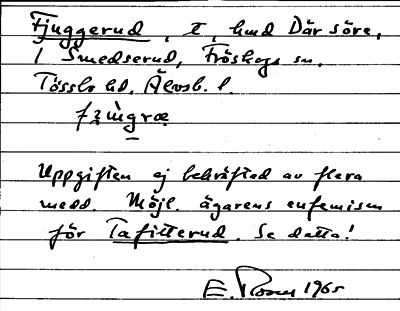 Fjuggerud, t, hmd Där söre,
i Smedserud, Fröskogs sn.
Tössbo hd, Älvsb. l.
Uppgiften ej bekräftad av flera
medd. Möjl. ägarens eufemism
för Tafitterud. Se detta!
E. 1965